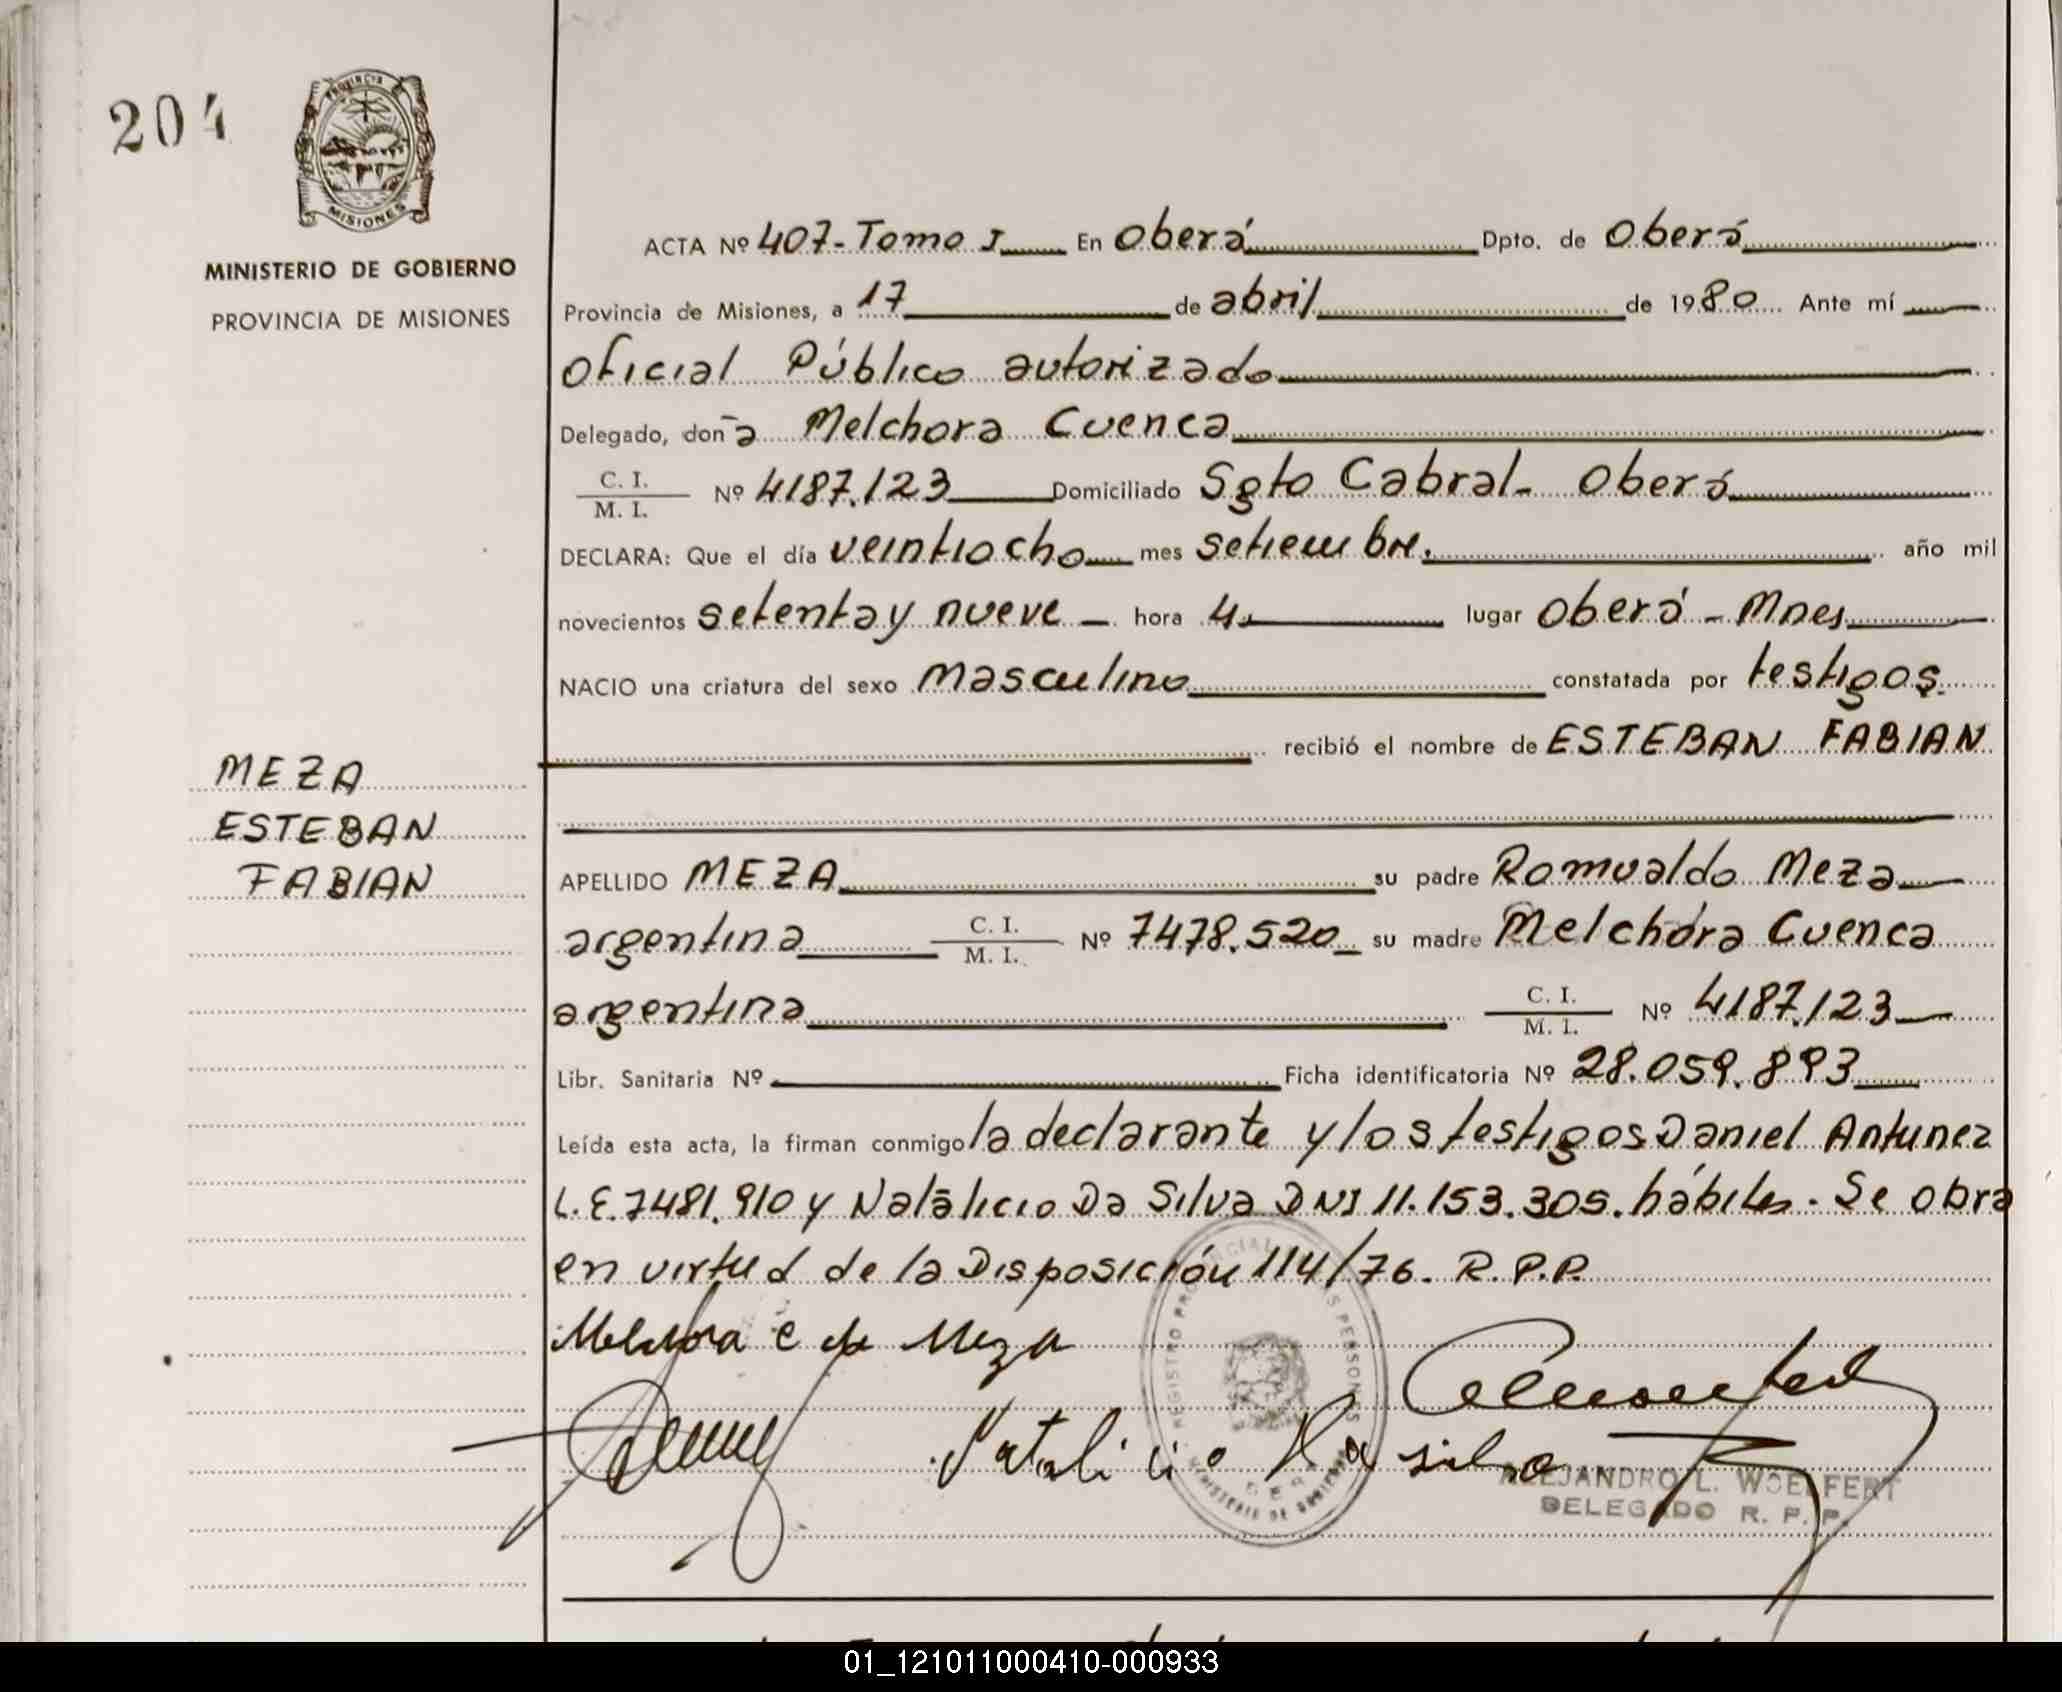 204
PROVINCIA
MISIONES
MINISTERIO DE GOBIERNO
PROVINCIA DE MISIONES
ACTA Nº 407-Tomo I En Oberá Dpto. de Oberá
Provincia de Misiones, a 17 de abril de 1980 Ante mí
Oficial Público autorizado
Delegado, doña Melchora Cuenca
C. I.
M. I.
Nº 4187.123 Domiciliado Sgto Cabral - Oberá
DECLARA: Que el día veintiocho mes setiembre. año mil
novecientos setenta y nueve - hora 4. lugar Oberá - Mnes
NACIO una criatura del sexo masculino constatada por testigos.
recibió el nombre de ESTEBAN FABIAN
MEZA
ESTEBAN
FABIAN
APELLIDO MEZA su padre Romualdo Meza
argentina C. I. M. I. Nº 7478.520 su madre Melchora Cuenca
argentina C. I. M. I. Nº 4187.123
Libr. Sanitaria Nº Ficha identificatoria Nº 28.059.893
Leída esta acta, la firman conmigo la declarante y los testigos Daniel Antunez
L.E.7481.910 y Natálicio Da Silva DNI 11.153.305. hábiles. Se obra
en virtud de la Disposición 114/76. R.P.P.
Melchora C de Meza
Natalicio Da silva
ALEJANDRO L. WOELFERT
DELEGADO R. P. P.
01_121011000410-000933